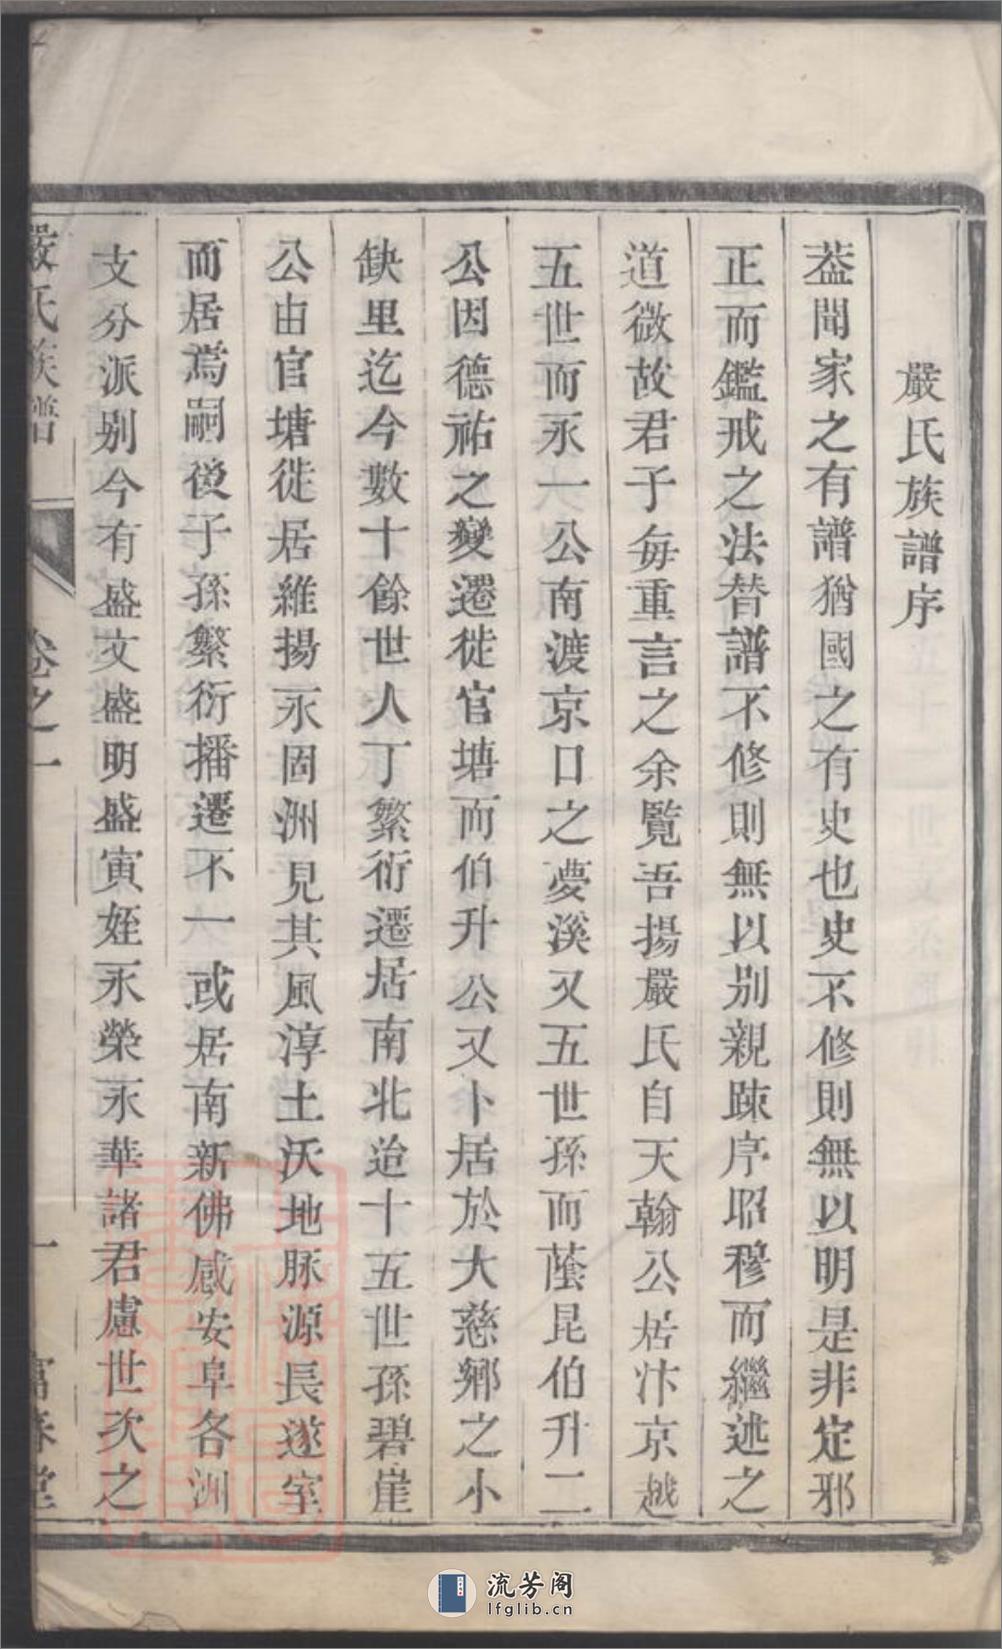 嚴氏族譜序
葢聞家之有譜猶國之有史也史不修則無以明是非定邪
正而鑑戒之法替譜不修則無以别親踈序昭穆而繼述之
道微故君子每重言之余覧吾揚嚴氏自天翰公居汴京越
五世而永一公南渡京口之夢溪又五世孫而蔭昆伯升二
公因德祐之變遷徙官塘而伯升公又卜居於大慈鄉之小
缺里迄今數十餘世人丁繁衍遷居南北迨十五世孫碧崖
公由官塘徙居維揚永固洲見其風淳土沃地脉源長遂室
而居焉嗣後子孫繁衍播遷不一或居南新佛感安阜各洲
支分派别今有盛文盛明盛寅姪永榮永華諸君慮世次之
嚴氏族譜 卷之一 一 富春堂
流芳阁
lfglib.cn